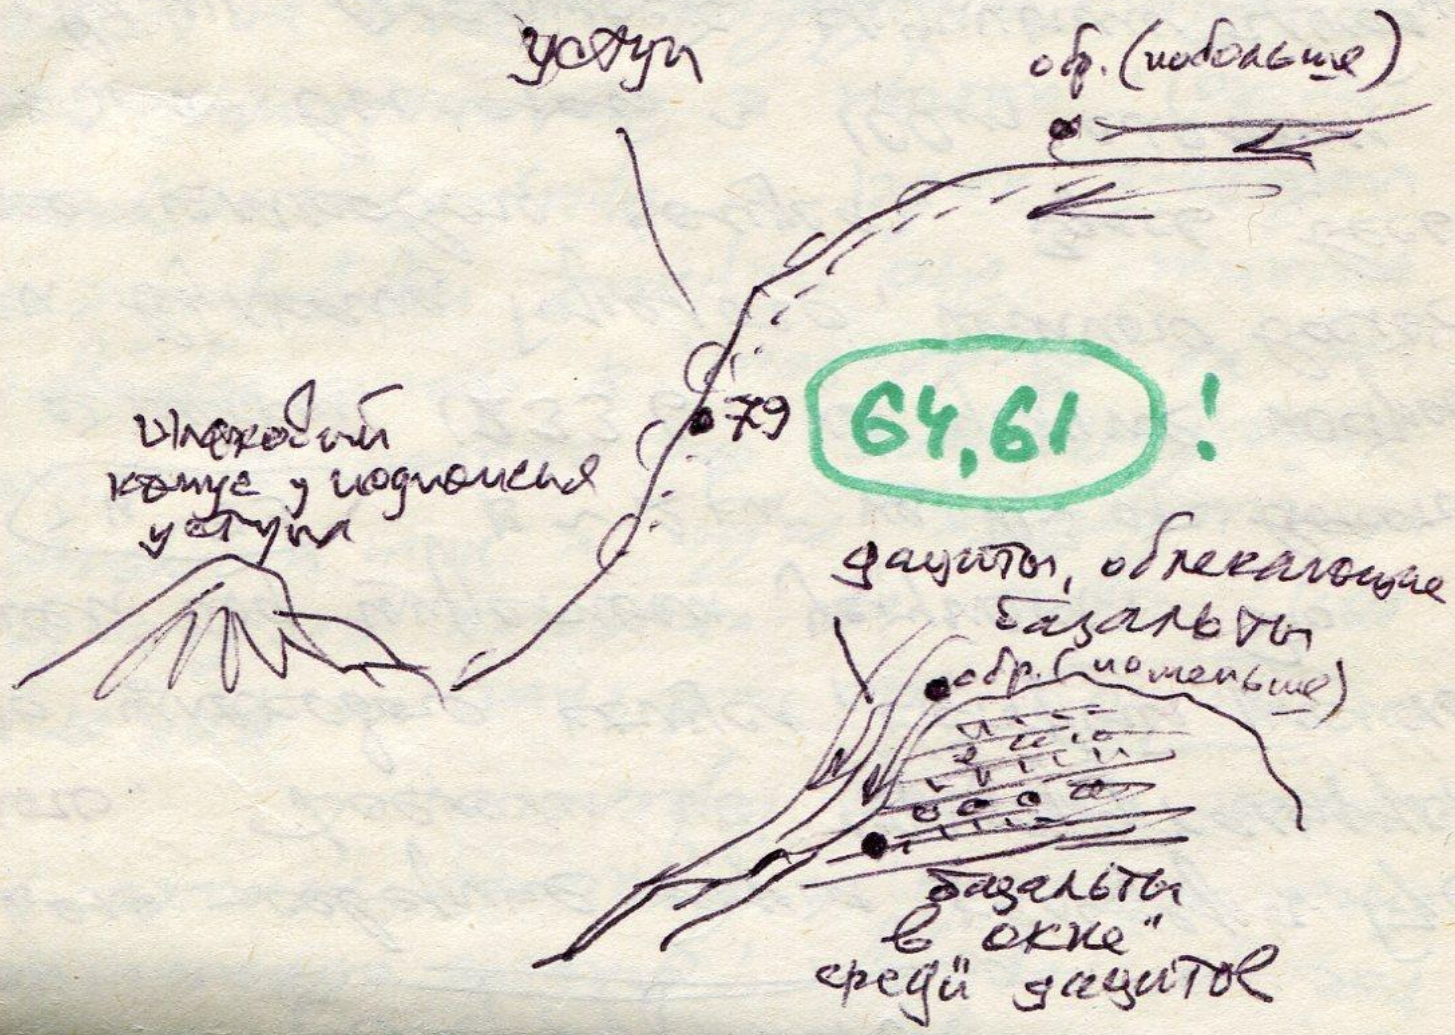 уступ
обр. (побольше)
79
64,61 !
шлаковый
конус у подножья
уступа
дациты, облекающие
базальты
обр. (поменьше)
базальты
в "окне"
среди дацитов